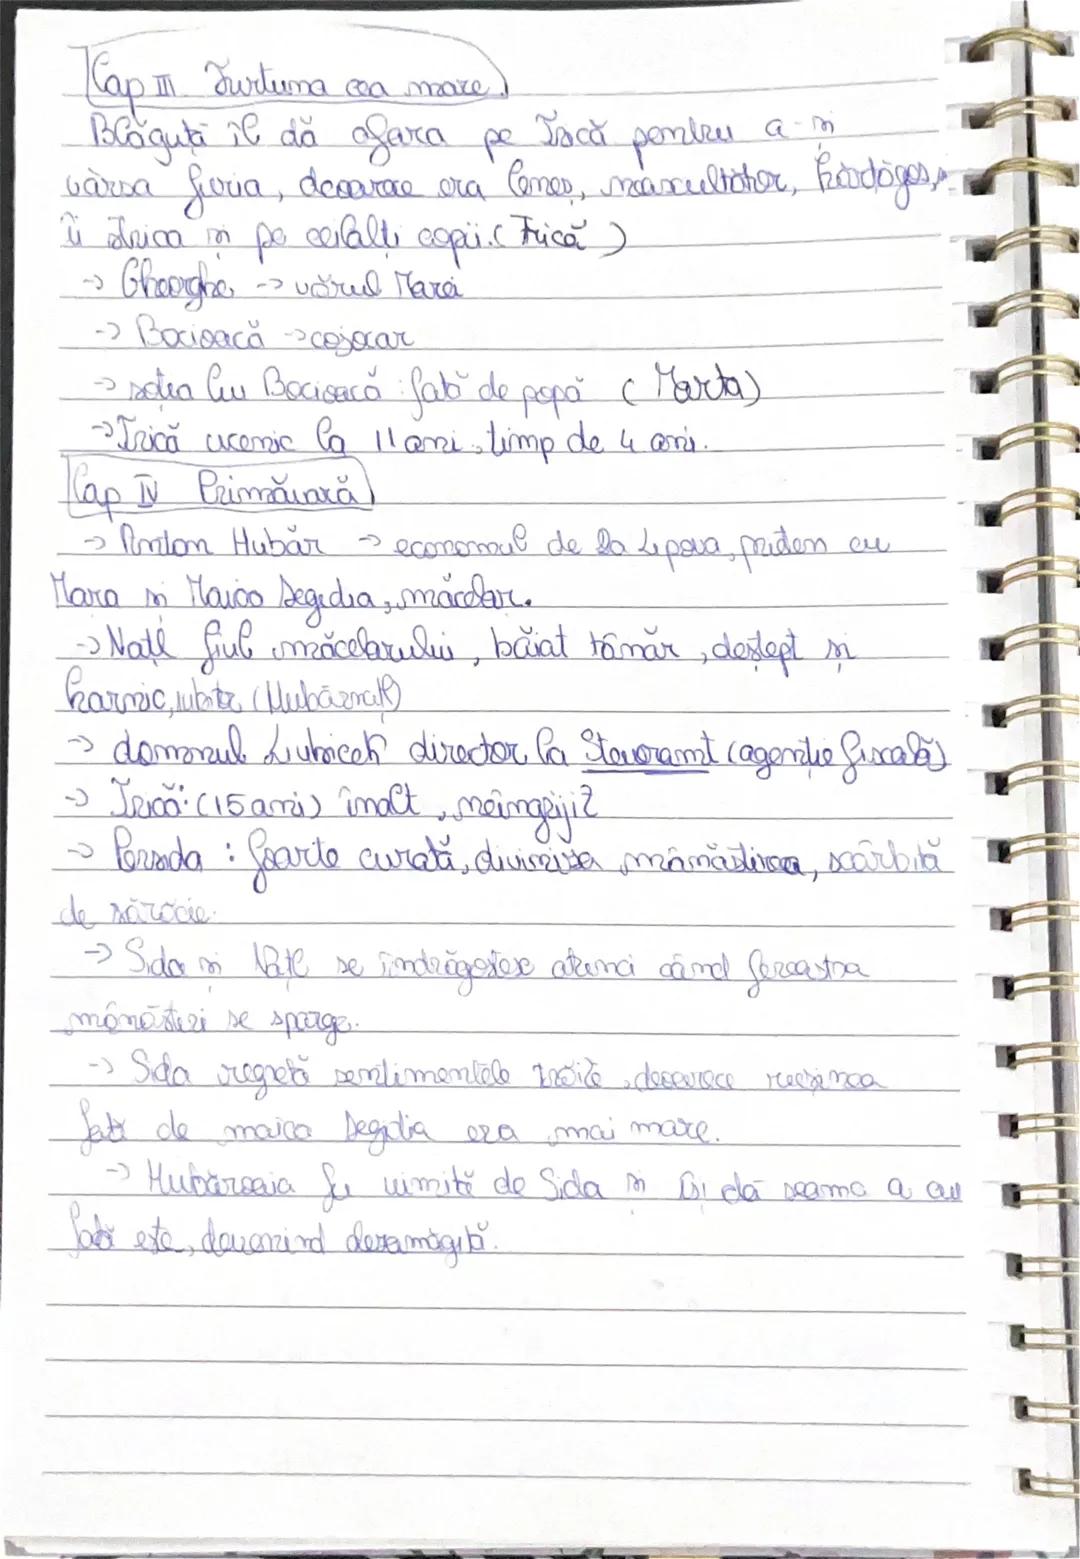 Cap III Furtuna cea mare
Blăguță îl dă afara pe Trică pentru a-și
vărsa furia, deoarece era lenes, neascultător, hărdăgos,
îi strica și pe ceilalți copii. (Frică)
-> Gheorghe -> vărul Marei
-> Bocioacă -> cojocar
-> soția lui Bocioacă : fată de popă (Marta)
-> Trică ucenic la 11 ani, timp de 4 ani.
Cap IV Primăvară
-> Anton Hubăr -> economul de la Lipova, priden cu
Mara și Maica Aegidia, măcelar.
-> Natl fiul măcelarului, băiat tânăr, deștept și
harnic, iubitor (Hubărnatl)
-> domnul Lubicek director la Stavoramt (agenție fiscală)
-> Trică: (15 ani) înalt, neîngrijit
-> Persida : foarte curată, mănăstirea, scârbită
de sărăcie.
-> Sida și Natl se îndrăgostesc atunci când fereastra
mănăstirii se sparge.
-> Sida regretă sentimentele trăite, deoarece rușinea
față de maica Aegidia era mai mare.
-> Hubăroaia fu uimită de Sida și își dă seama a cui
fată este, devenind dezamăgită.